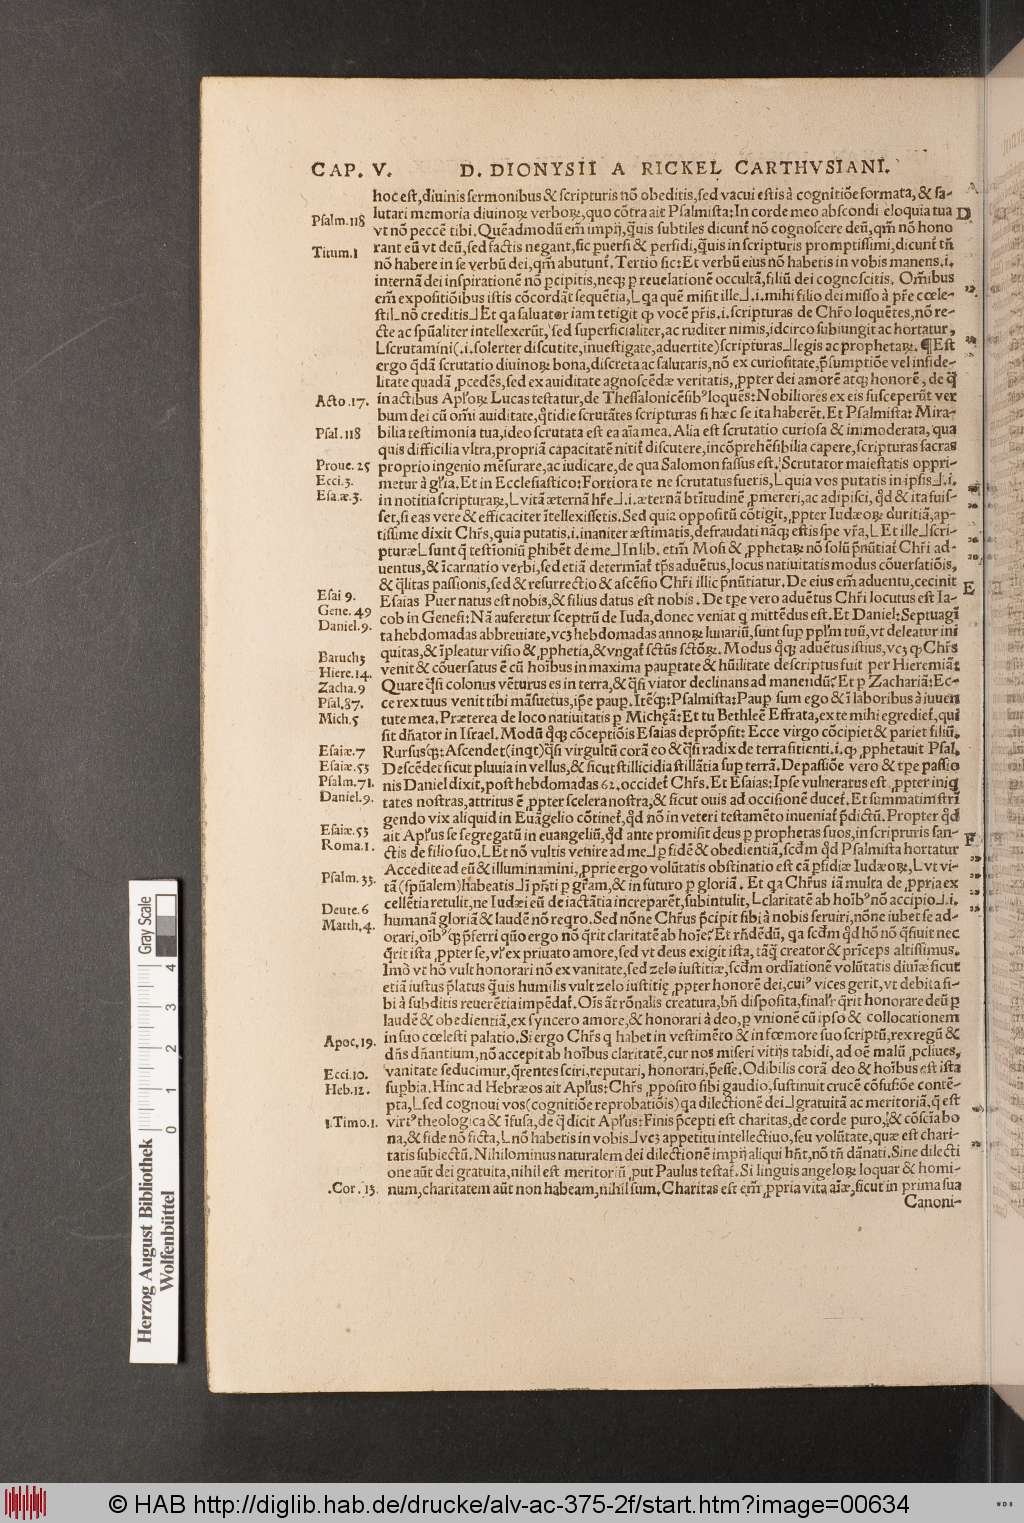 CAP. V. D. DIONYSII A RICKEL CARTHVSIANI.
hoc est, diuinis sermonibus & scripturis nõ obeditis, sed vacui estis à cognitiõe formata, & sa-
Psalm. 118 lutari memoria diuinoꝝ verboꝝ, quo cõtra ait Psalmista: In corde meo abscondi eloquia tua D
vt nõ peccē tibi. Quēadmodũ em̃ impij, q̃uis subtiles dicunt nõ cognoscere deũ, qm̃ nõ hono
Titum. 1 rant eũ vt deũ, sed factis negant, sic puersi & perfidi, q̃uis in scripturis promptissimi, dicunt tñ
nõ habere in se verbũ dei, qm̃ abutunt. Tertio sic: Et verbũ eius nõ habetis in vobis manens. i.
internã dei inspirationē nõ pcipitis, neqꝫ p reuelationē occultã, filiũ dei cognoscitis. Om̃ibus
em̃ expositiõibus istis cõcordat sequẽtia, L qa quē misit ille ⅃ .i. mihi filio dei misso à pr̃e cœle-
sti L nõ creditis ⅃ Et qa saluator iam tetigit qp vocē pr̃is .i. scripturas de Chr̃o loquētes, nõ re-
cte ac spũaliter intellexerũt, sed superficialiter, ac ruditer nimis, idcirco subiungit ac hortatur,
L scrutamini (.i. solerter discutite, inuestigate, aduertite) scripturas ⅃ legis ac prophetaꝝ. ¶ Est
ergo q̃dã scrutatio diuinoꝝ bona, discreta ac salutaris, nõ ex curiositate, p̃sumptiõe vel infide-
litate quadã pcedēs, sed ex auiditate agnoscēdæ veritatis, ppter dei amorē atqꝫ honorē, de q̃
Acto. 17. in actibus Apl'oꝝ Lucas testatur, de Thessalonicēsibꝰ loquēs: Nobiliores ex eis susceperũt ver
bum dei cũ om̃i auiditate, q̃tidie scrutãtes scripturas si hæc se ita haberēt. Et Psalmista: Mira-
Psal. 118 bilia testimonia tua, ideo scrutata est ea aĩa mea. Alia est scrutatio curiosa & inmoderata, qua
quis difficilia vltra, propriã capacitatē nitit discutere, incõprehēsibilia capere, scripturas sacras
Proue. 25 proprio ingenio mēsurare, ac iudicare, de qua Salomon fassus est. Scrutator maiestatis oppri-
Ecci. 3. metur à gl'ia. Et in Ecclesiastico: Fortiora te ne scrutatus fueris, L quia vos putatis in ipsis ⅃ .i.
Esa.æ. 3. in notitia scripturaꝝ, L vitã æternã hr̃e ⅃ .i. æternã btĩtudinē pmereri, ac adipisci, qd & ita fuis-
set, si eas vere & efficaciter ĩtellexissetis. Sed quia oppositũ cõtigit, ppter Iudæoꝝ duritiã, ap-
tissime dixit Chr̃s, quia putatis, i. inaniter æstimatis, defraudati nãqꝫ estis spe vr̃a. L Et ille ⅃ scri-
pturæ L sunt q̃ testĩoniũ phibēt de me ⅃ In lib. etm̃ Mosi & pphetaꝝ nõ solũ p̃nũtiat Chr̃i ad-
uentus, & ĩcarnatio verbi, sed etiã determĩat tp̃s aduẽtus, locus natiuitatis modus cõuersatiõis,
& q̃litas passionis, sed & resurrectio & ascēsio Chr̃i illic p̃nũtiatur. De eius em̃ aduentu, cecinit E
Esai 9. Esaias Puer natus est nobis, & filius datus est nobis. De tpe vero aduẽtus Chr̃i locutus est Ia-
Gene. 49 cob in Genesi: Nã auferetur sceptrũ de Iuda, donec veniat q mittēdus est. Et Daniel: Septuagĩ
Daniel. 9. ta hebdomadas abbreuiate, vcꝫ hebdomadas annoꝝ lunariũ, sunt sup ppl'm tuũ, vt deleatur ini
quitas, & ĩpleatur visio & pphetia, & vngat sctũs sctõꝝ. Modus q̃qꝫ aduẽtus istius, vcꝫ qp Chr̃s
Baruch 3 venit & cõuersatus ē cũ hoĩbus in maxima pauptate & hũilitate descriptus fuit per Hieremiã:
Hiere. 14. Quare q̃si colonus vēturus es in terra, & q̃si viator declinans ad manendũ? Et p Zachariã: Ec-
Zacha. 9 ce rex tuus venit tibi mãsuetus, ip̃e paup. Itēqꝫ: Psalmista: Paup sum ego & ĩ laboribus à iuuen
Psal. 87. tute mea. Præterea de loco natiuitatis p Michęã: Et tu Bethleē Effrata, ex te mihi egrediet, qui
Mich. 5 sit dñator in Israel. Modũ q̃qꝫ cõceptiõis Esaias deprõpsit: Ecce virgo cõcipiet & pariet filiũ.
Esaiæ. 7 Rursusqꝫ: Ascendet (inqt) q̃si virgultũ corã eo & q̃si radix de terra sitienti .i. qp pphetauit Psal.
Esaiæ. 53 Descēdet sicut pluuia in vellus, & sicut stillicidia stillãtia sup terrã. De passiõe vero & tpe passio
Psalm. 71. nis Daniel dixit, post hebdomadas 62. occidet Chr̃s. Et Esaias: Ipse vulneratus est ppter iniq
Daniel. 9. tates nostras, attritus ē ppter scelera nostra, & sicut ouis ad occisionē ducet. Et summatim strĩ
gendo vix aliquid in Euãgelio cõtinet, qd nõ in veteri testamēto inueniat p̃dictũ. Propter qd
Esaiæ. 53 ait Apl'us se segregatũ in euangeliũ, qd ante promisit deus p prophetas suos, in scripruris san- F
Roma. 1. ctis de filio suo. L Et nõ vultis venire ad me ⅃ p fidē & obedientiã, scdm qd Psalmista hortatur
Accedite ad eũ & illuminamini, pprie ergo volũtatis obstinatio est cã pfidiæ Iudæoꝝ, L vt vi-
Psalm. 33. tã (spũalem) habeatis ⅃ ĩ pñti p gr̃am, & in futuro p gloriã. Et qa Chr̃us iã multa de ppria ex
cellētia retulit, ne Iudæi eũ de iactãtia increparēt, subintulit, L claritatē ab hoĩbꝰ nõ accipio ⅃ .i.
Deute. 6 humanã gloriã & laudē nõ reqro. Sed nõne Chr̃us p̃cipit sibi à nobis seruiri, nõne iubet se ad-
Matth. 4. orari, oĩbꝰ qp p̃ferri quo ergo nõ q̃rit claritatē ab hoĩe? Et rñdēdũ, qa scdm qd hõ nõ q̃siuit nec
q̃rit ista ppter se, vl' ex priuato amore, sed vt deus exigit ista, tãq̃ creator & prĩceps altissimus.
Imò vt hõ vult honorari nõ ex vanitate, sed zelo iustitiæ, scdm ordĩationē volũtatis diuĩæ sicut
etiã iustus p̃latus q̃uis humilis vult zelo iustitię ppter honorē dei, cuiꝰ vices gerit, vt debita si-
bi à subditis reuerētia impēdat. Oĩs aũt rõnalis creatura, bñ disposita, final'r q̃rit honorare deũ p
laudē & obedientiã, ex syncero amore, & honorari à deo, p vnionē cũ ipso & collocationem
Apoc. 19. in suo cœlesti palatio. Si ergo Chr̃s q habet in vestimēto & in fœmore suo scriptũ, rex regũ &
dñs dñantium, nõ accepit ab hoĩbus claritatē, cur nos miseri vitijs tabidi, ad oē malũ pcliues,
Ecci. 10. vanitate seducimur, q̃rentes sciri, reputari, honorari, p̃esse. Odibilis corã deo & hoĩbus est ista
Heb. 12. supbia. Hinc ad Hebræos ait Apl'us: Chr̃s pposito sibi gaudio, sustinuit crucē cõfusiõe contē-
pta, L sed cognoui vos (cognitiõe reprobatiõis) qa dilectionē dei ⅃ gratuitã ac meritoriã, q̃ est
1. Timo. 1. virtꝰ theologica & ĩfusa, de q̃ dicit Apl'us: Finis p̃cepti est charitas, de corde puro, & cõsciã bo
na, & fide nõ ficta, L nõ habetis in vobis ⅃ vcꝫ appetitu intellectiuo, seu volũtate, quæ est chari-
tatis subiectũ. Nihilominus naturalem dei dilectionē impij aliqui hñt, nõ tñ dãnati. Sine dilecti
one aũt dei gratuita, nihil est meritoriũ, put Paulus testat. Si linguis angeloꝝ loquar & homi-
.Cor. 13. num, charitatem aũt non habeam, nihil sum. Charitas est em̃ ppria vita aĩæ, sicut in prima sua
Canoni-
Gray Scale
0 1 2 3 4
Herzog August Bibliothek
Wolfenbüttel
© HAB http://diglib.hab.de/drucke/alv-ac-375-2f/start.htm?image=00634